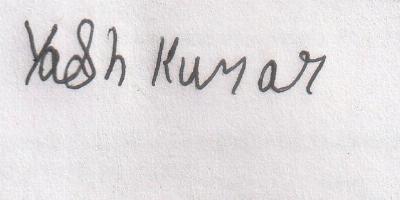 Yash Kumar